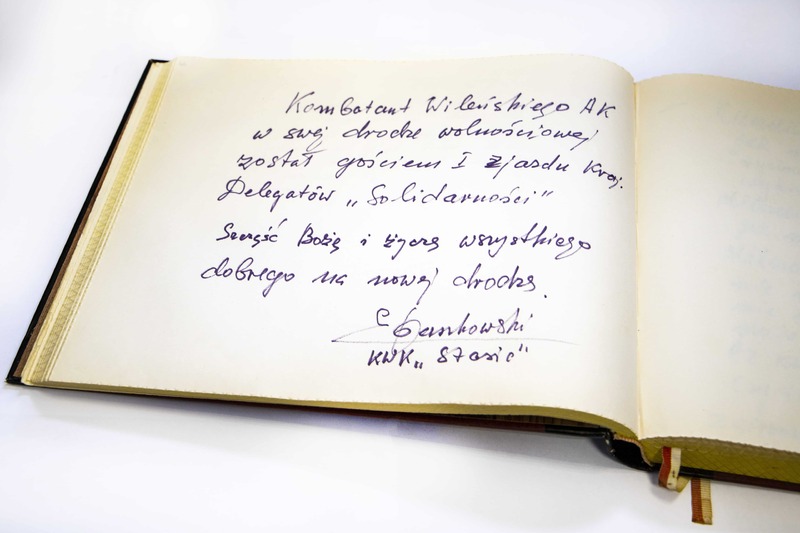 Kombatant Wileńskiego AK
w swej drodze wolnościowej
został gościem I Zjazdu Kraj.
Delegatów „Solidarności"
Szczęść Boże i życzę wszystkiego
dobrego na nowej drodze.
KWK „Staszic"